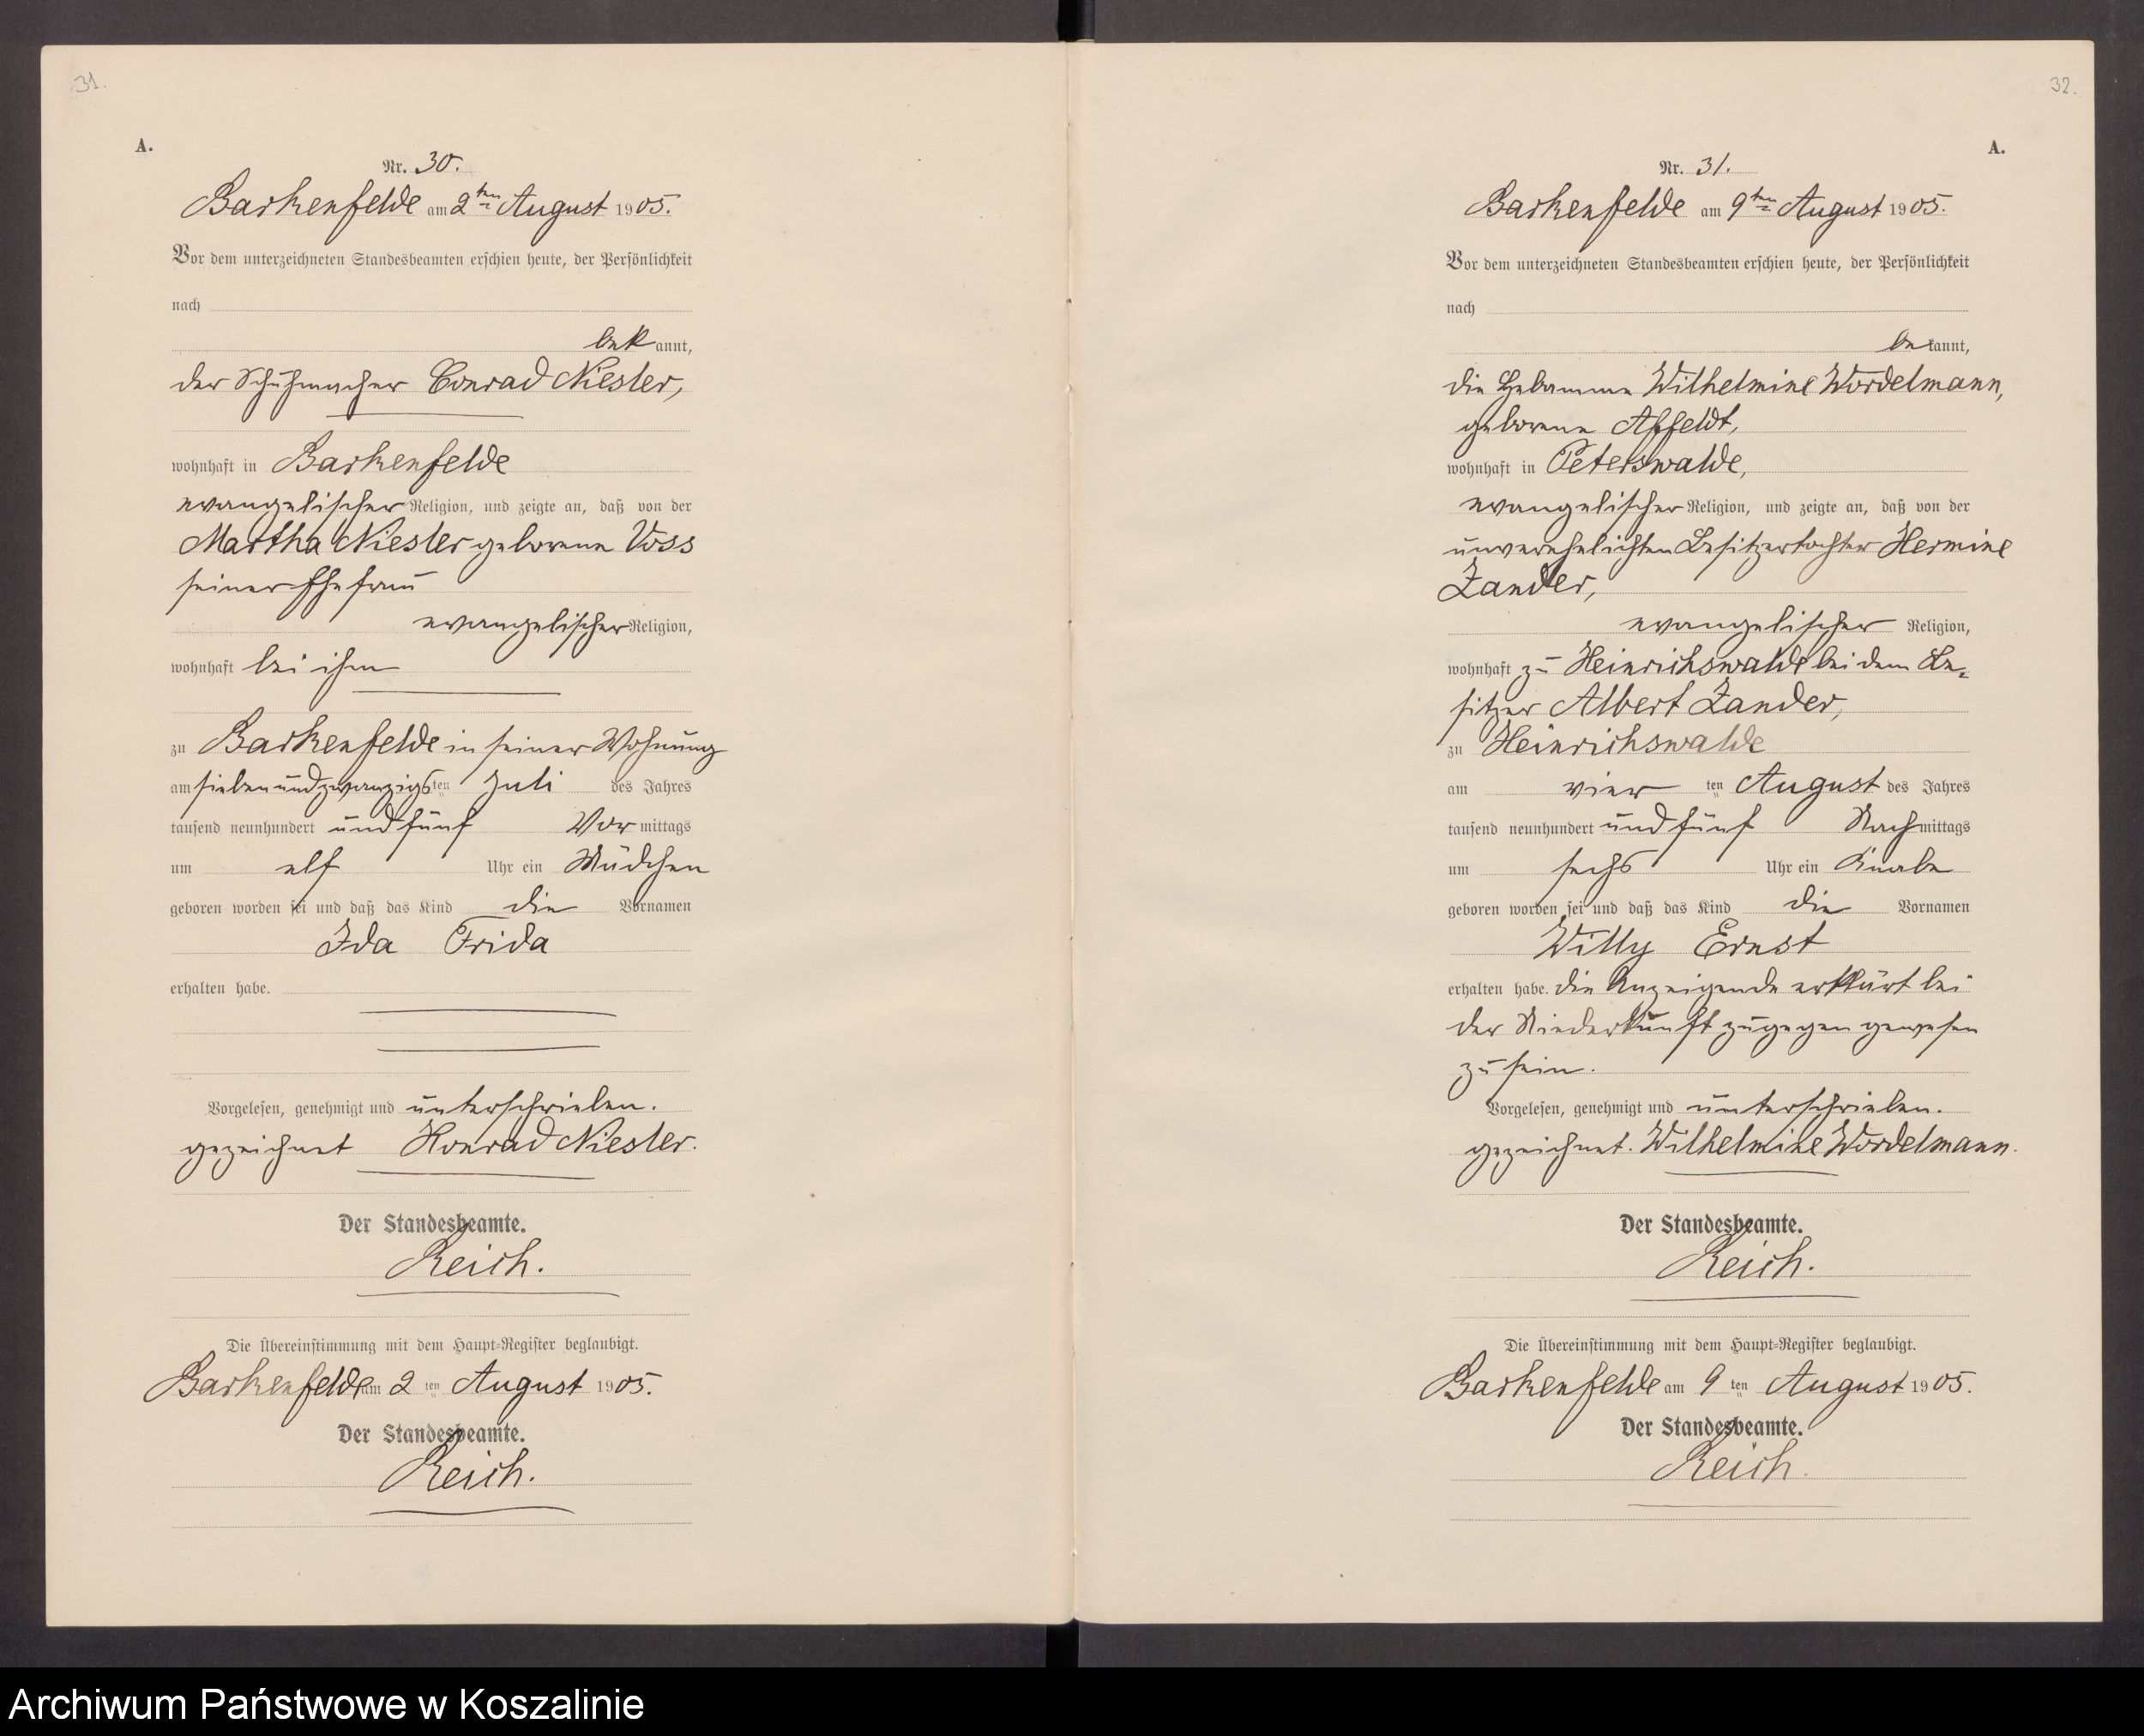 31.
A.
Nr. 30.
Barkenfelde am 2ten August 1905.
Vor dem unterzeichneten Standesbeamten erschien heute, der Persönlichkeit
nach
bekannt,
der Schuhmacher Conrad Niesler,
wohnhaft in Barkenfelde
evangelischer Religion, und zeigte an, daß von der
Martha Niesler geborene Voss
seiner Ehefrau
evangelischer Religion,
wohnhaft bei ihm
zu Barkenfelde in seiner Wohnung
am siebenundzwanzigsten Juli des Jahres
tausend neunhundert und fünf Vormittags
um elf Uhr ein Mädchen
geboren worden sei und daß das Kind die Vornamen
Ida Frida
erhalten habe.
Vorgelesen, genehmigt und unterschrieben.
gezeichnet Konrad Niesler.
Der Standesbeamte.
Reich.
Die Übereinstimmung mit dem Haupt-Register beglaubigt.
Barkenfelde am 2ten August 1905.
Der Standesbeamte.
Reich.
32.
A.
Nr. 31.
Barkenfelde am 9ten August 1905.
Vor dem unterzeichneten Standesbeamten erschien heute, der Persönlichkeit
nach
bekannt,
die Hebamme Wilhelmine Wordelmann,
geborene Affeldt,
wohnhaft in Peterswalde,
evangelischer Religion, und zeigte an, daß von der
unverehelichten Besitzertochter Hermine
Zander,
evangelischer Religion,
wohnhaft zu Heinrichswalde bei dem Be-
sitzer Albert Zander,
zu Heinrichswalde
am vierten August des Jahres
tausend neunhundert und fünf Nachmittags
um sechs Uhr ein Knabe
geboren worden sei und daß das Kind die Vornamen
Willy Ernst
erhalten habe. die Anzeigende erklärt bei
der Niederkunft zugegen gewesen
zu sein.
Vorgelesen, genehmigt und unterschrieben.
gezeichnet. Wilhelmine Wordelmann.
Der Standesbeamte.
Reich.
Die Übereinstimmung mit dem Haupt-Register beglaubigt.
Barkenfelde am 9ten August 1905.
Der Standesbeamte.
Reich.
Archiwum Państwowe w Koszalinie